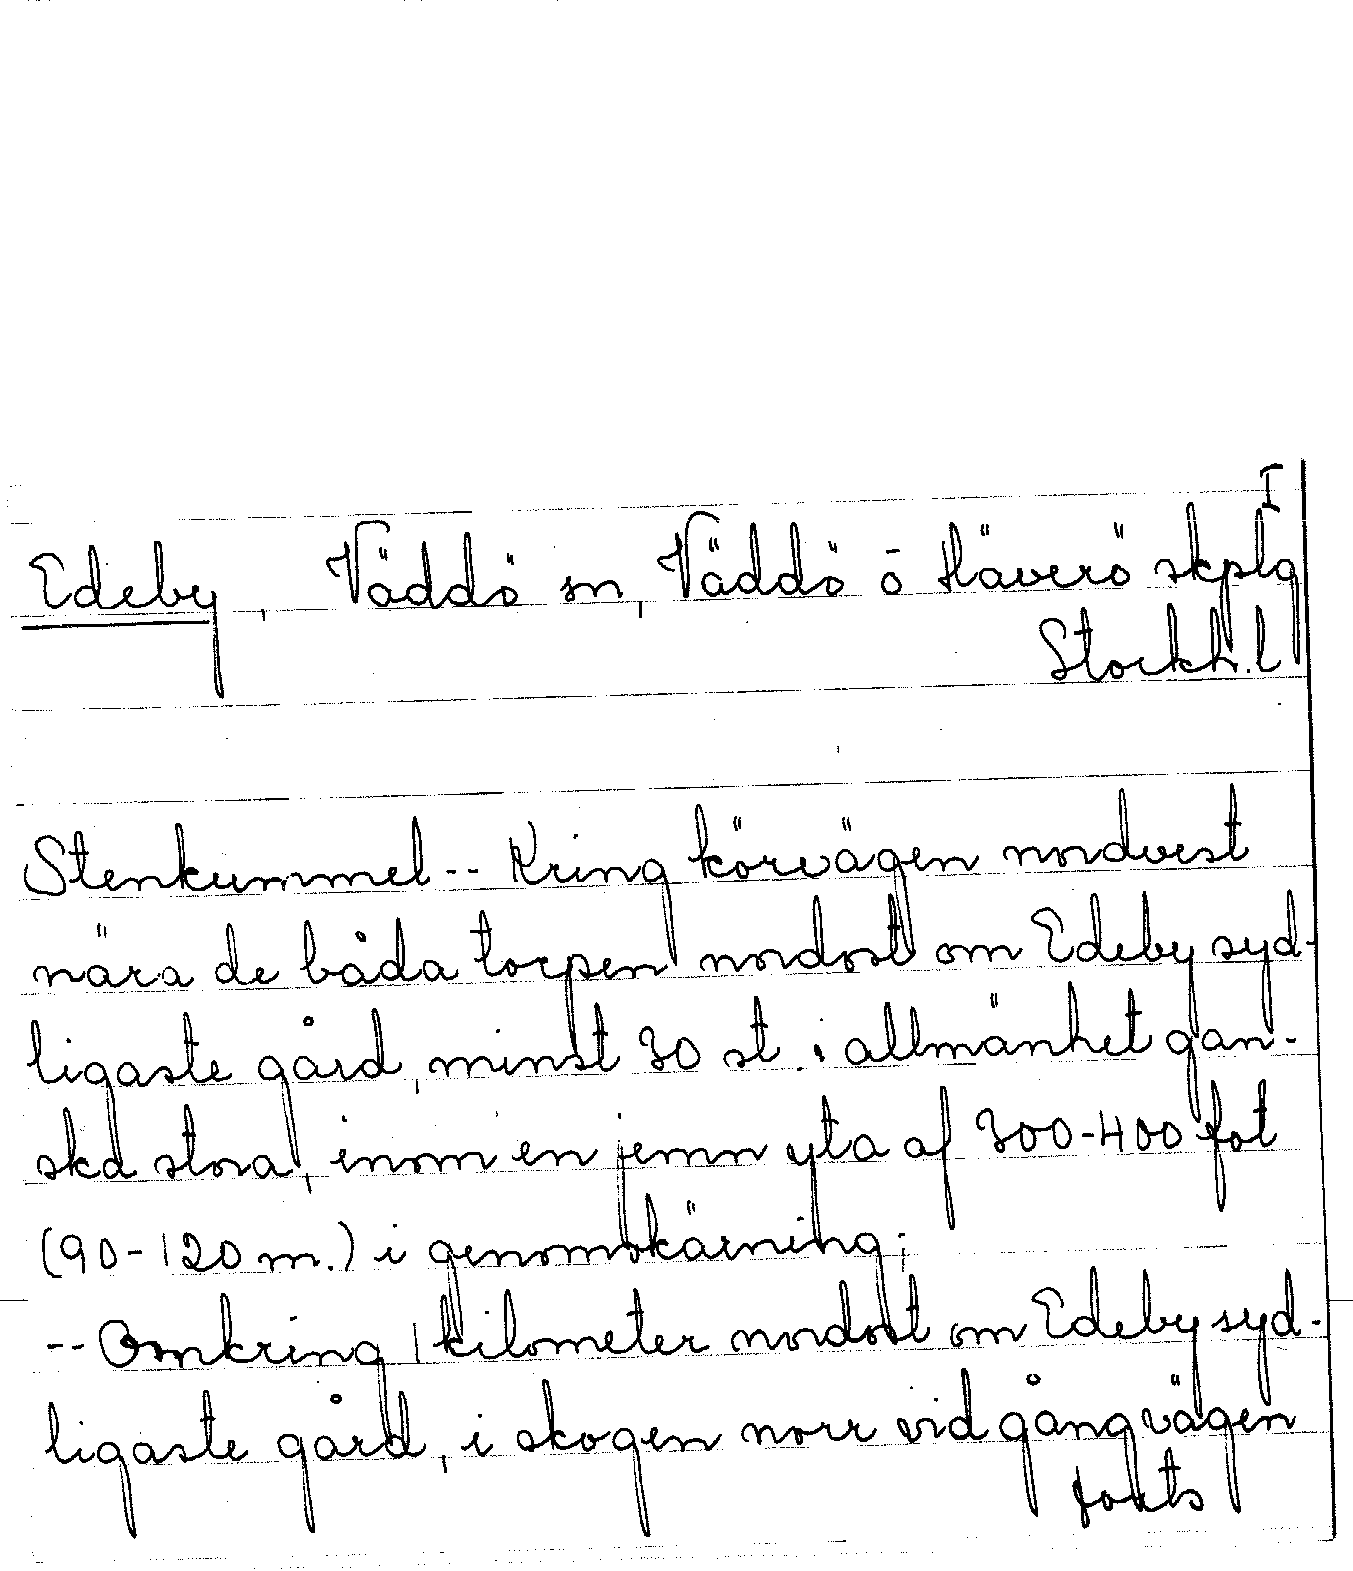 I
Edeby, Väddö sn, Väddö ō Häverö skplg
Stockh.l
Stenkummel -- Kring körvägen nordvest
nära de båda torpen nordost om Edeby syd-
ligaste gård, minst 30 st. i allmänhet gan-
ska stora, inom en jemn yta af 300-400 fot
(90-120 m.) i genomskärning;
-- Omkring 1 kilometer nordost om Edeby syd-
ligaste gård, i skogen norr vid gångvägen
forts